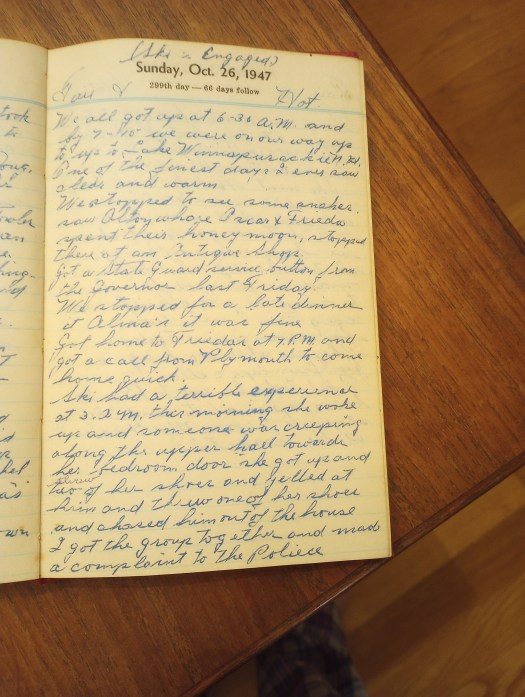 took
to
(Ski is Engaged)
Sunday, Oct. 26, 1947
299th day — 66 days follow
Fair & Hot
We all got up at 6-30 A.M. and
by 7-10 we were on our way up
up to Lake N.H.
One of the finest days I ever saw
and warm
We stopped to see some snakes,
saw Alton where Oscar & Frieda
spent their honey moon, stopped
there at an Antique Shop.
Got a State Guard service button from
the Governor last Friday.
We stopped for a late dinner
at Alma's it was fine
Got home to Frieda's at 7 P.M. and
got a call from Plymouth to come
home quick.
Ski had a terrible experience
at 3 A.M. this morning she woke
up and someone was creeping
along the upper hall towards
her bedroom door she got up and
threw
two of her shoes and yelled at
him and threw one of her shoes
and chased him out of the house
I got the group together and made
a complaint to the Poliece
own